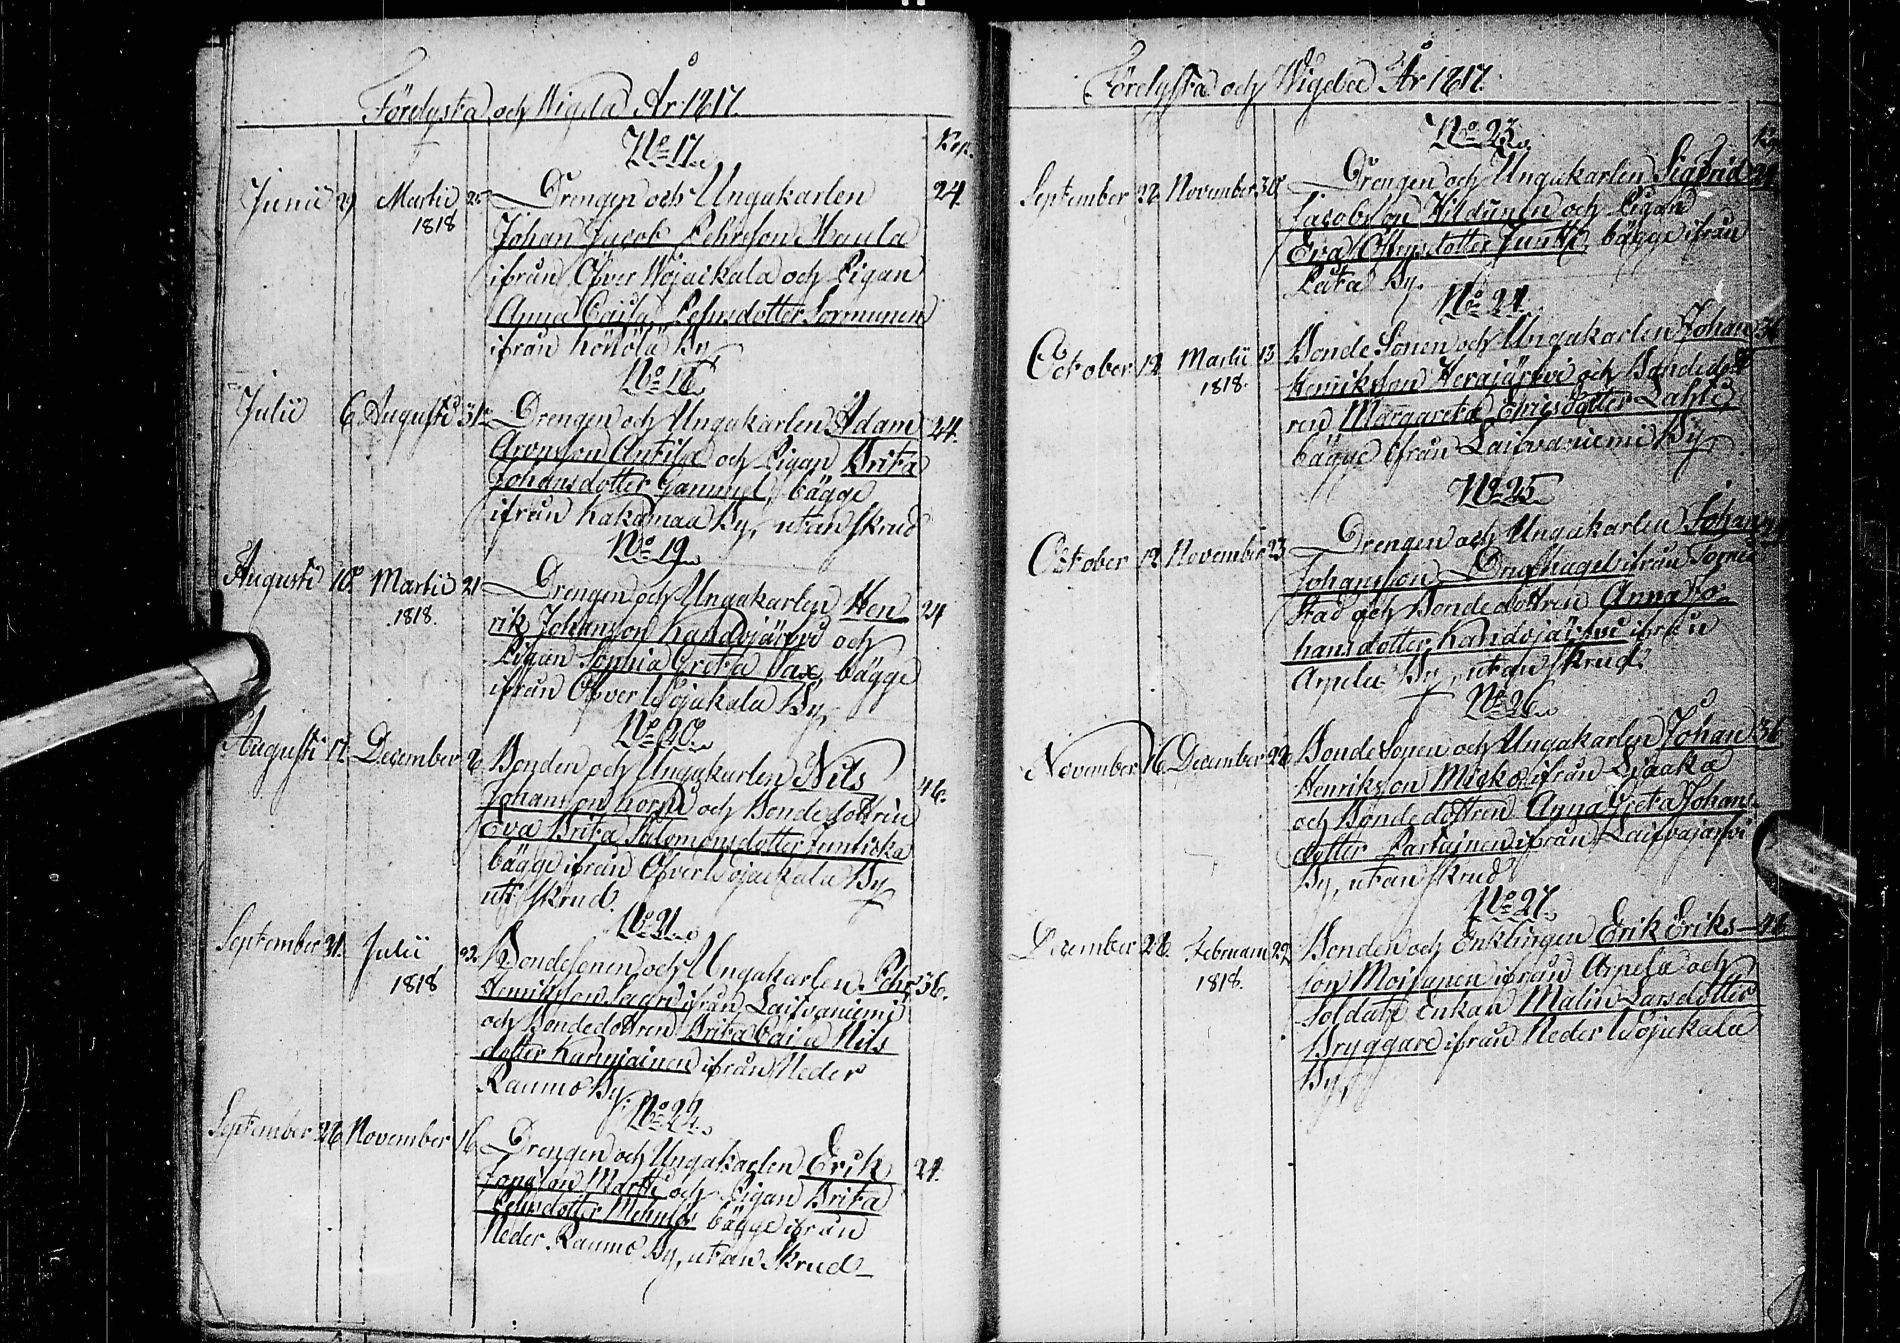 Förlysta och Wigda År 1817.
Kop.
No 17.
Junii 29 Martii 25 Drengen och Ungakarlen 24
1818 Johan Jacob Pehrsson Maula
ifrån Öfver Wojakala och Pigan
Anna Caisa Pehrsdotter Sormunen
ifrån Könölä By,
No 18
Julii 6 Augusti 31 Drengen och Ungakarlen Adam 24.
Aronsson Antila och Pigan Brita
Johansdotter Gammel, bägge
ifrån Kakamaa By, utan skrud
No 19.
Augusti 10 Martii 21 Drengen och Ungakarlen Hen 24
1818. rik Johansson Kandojärvi och
Pigan Sophia Greta Sax, bägge
ifrån Öfver Wojakala By,
No 20.
Augusti 17. December 26 Bonden och Ungakarlen Nils 46.
Johansson Korpi och Bondedottren
Eva Brita Salomonsdotter Juntiska
bägge ifrån Öfver Wojakala By,
ut. skrud.
No 21.
September 21. Julii 22. Bondesonen och Ungakarlen Pehr 36.
1818 Henriksson ifrån Laivaniemi
och Bondedottren Brita Caisa Nils
dotter Karjalainen ifrån Neder
Raumo By.
No 22.
September 26 November 16 Drengen och Ungakarlen Erik 24.
Martti och Pigan Brita
Pehrsdotter bägge ifrån
Neder. Raumo By, utan Skrud
Förlysta och Wigde År 1817.
No 23.
September 28 November 30 Drengen och Ungakarlen Sigfrid 24
Jacobsson Hildunen och Pigan
Eva Junti, bägge ifrån
Lauta By.
No 24.
October 12 Martii 13 Bonde Sonen och Ungakarlen Johan 36
1818. Henriksson Herajärvi och Bondedott
ren Margareta Ericsdotter Lahti,
bägge ifrån Laivaniemi By,
No 25
October 12 November 23 Drengen och Ungakarlen Johan
Johansson ifrån Torneå
Stad och Bondedottren Anna Jo-
hansdotter Kandojärvi ifrån
Arpela By, utan skrud.
No 26
November 16 December 26 Bondesonen och Ungakarlen Johan 36
Henriksson Micko ifrån Liakka
och Bondedottren Anna Greta Johans-
dotter Partainen ifrån Laivajärvi
By, utan skrud
No 27.
December 26 Februarii 22 Bonden och Enklingen Erik Eriks-
1818. son Moisanen ifrån Arpela och
Soldats Enkan Malin Larsdotter
Bryggare ifrån Neder Wojakala
By,